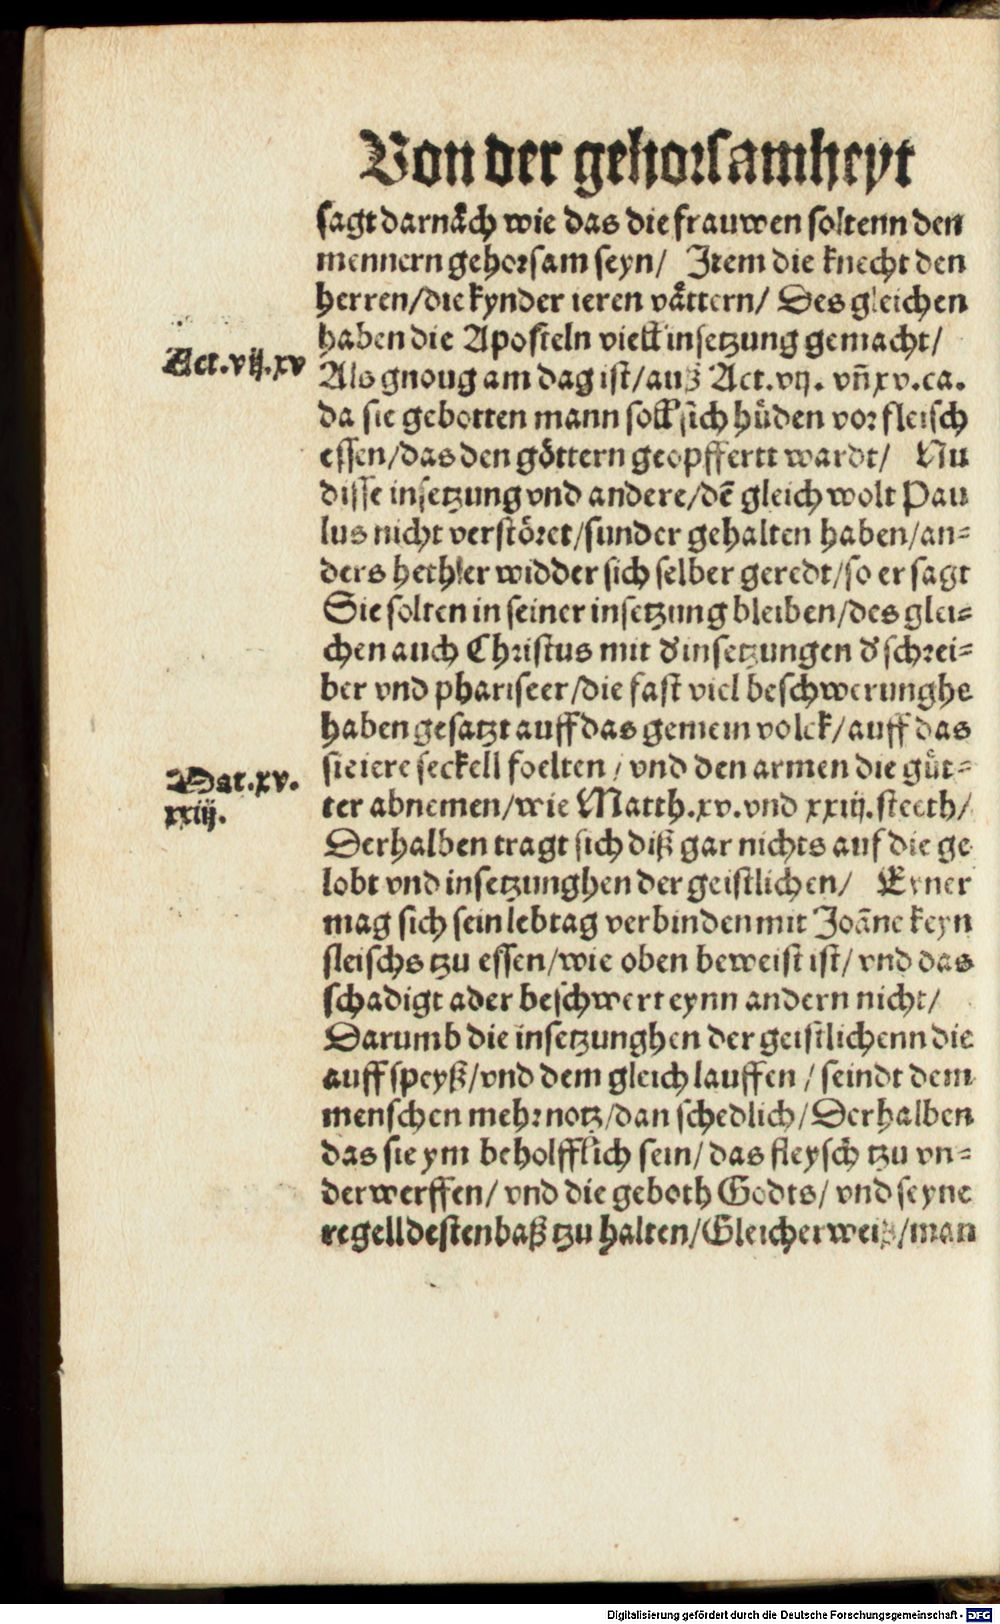 Von der gehorsamheyt
sagt darnåch wie das die frauwen soltenn den
mennern gehorsam seyn/ Item die knecht den
herren/die kynder ieren våttern/ Des gleichen
haben die Aposteln viell insetzung gemacht/
Act.vij.xv
Als gnoug am dag ist/auß Act.vij. vñ xv.ca.
da sie gebotten mann soll sich hüden vor fleisch
essen/das den göttern geopffertt wardt/ Nu
disse insetzung vnd andere/dē gleich wolt Pau
lus nicht verstöret/sunder gehalten haben/an⸗
ders heth er widder sich selber geredt/so er sagt
Sie solten in seiner insetzung bleiben/des glei⸗
chen auch Christus mit d' insetzungen d' schrei⸗
ber vnd phariseer/die fast viel beschwerunghe
haben gesatzt auff das gemein volck/auff das
sie iere seckell foelten/ vnd den armen die güt⸗
Mat.xv.
xxiij.
ter abnemen/wie Matth.xv.vnd xxiij.steeth/
Derhalben tragt sich diß gar nichts auf die ge
lobt vnd insetzunghen der geistlichen/ Eyner
mag sich sein lebtag verbinden mit Joāne keyn
fleischs tzu essen/wie oben beweist ist/ vnd das
schadigt ader beschwert eynn andern nicht/
Darumb die insetzunghen der geistlichenn die
auff speyß/vnd dem gleich lauffen/ seindt dem
menschen mehr notz/dan schedlich/Derhalben
das sie ym beholfflich sein/das fleysch tzu vn⸗
derwerffen/ vnd die geboth Godts/ vnd seyne
regell desten baß tzu halten/Gleicher weiß/man
Digitalisierung gefördert durch die Deutsche Forschungsgemeinschaft - DFG